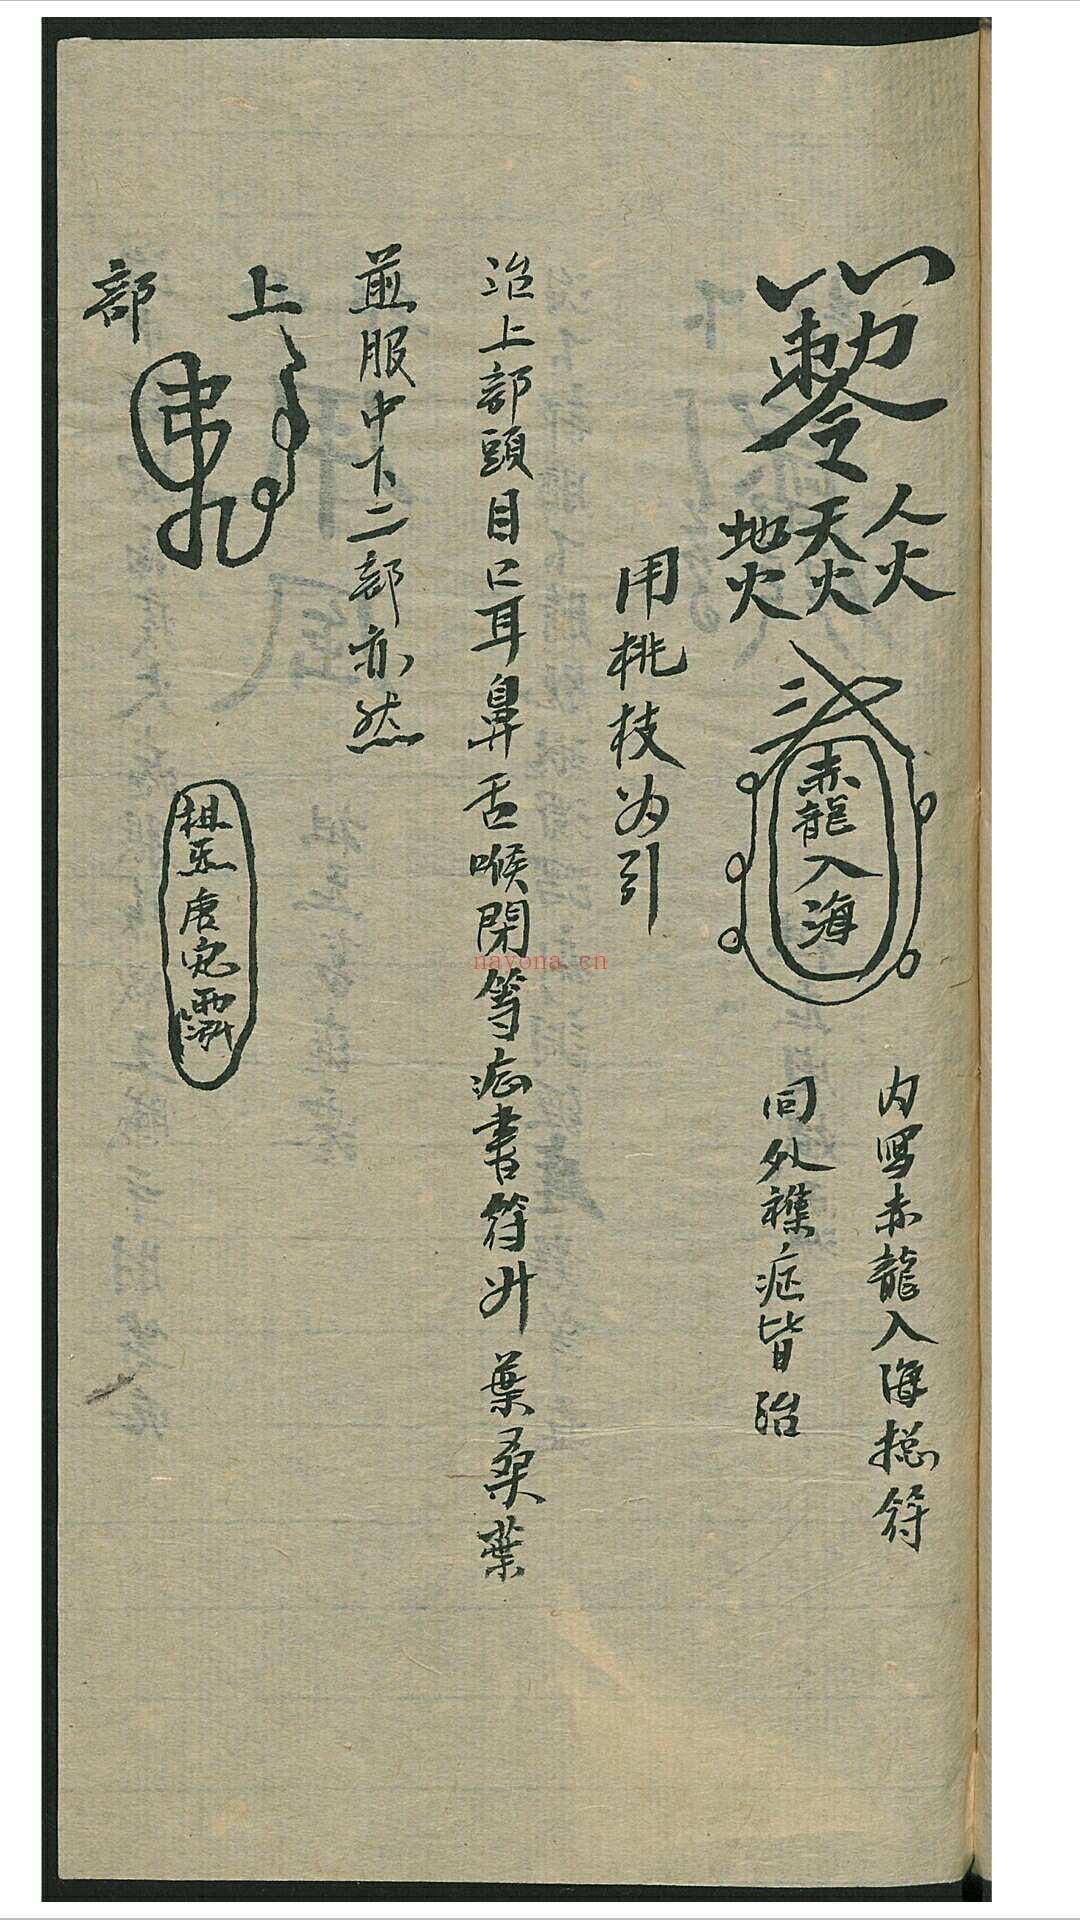 勅令
人火
天火
地火
赤龍入海
内写赤龍入海搃符
同外襍症皆治
用桃枝为引
治上部頭目口耳鼻舌喉閉等症書符 葉桑葉
煎服中下二部亦然
上
部
nayona.cn